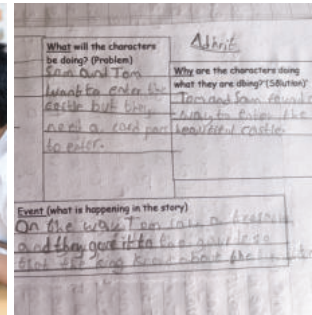 Adhrit
What will the characters
be doing? (Problem)
Sam and Tom
want to enter the
castle but they
need a card pass
to enter.
Why are the characters doing
what they are doing? (Solution)
Tom and Sam found a
way to enter the
beautiful castle.
Event (what is happening in the story)
On the way Tom saw a
and they gave it to the guards so
that the king know about the